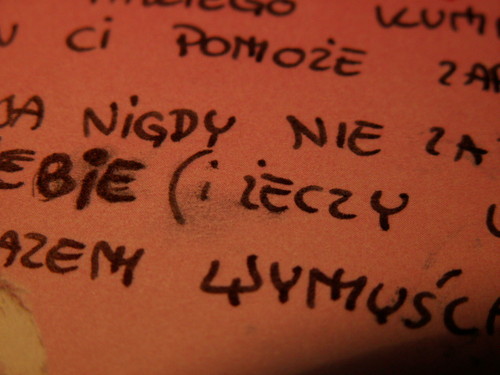 KUM
Ci POMOŻE ZA
JA NiGDY NIE ZA
EBiE (i żECZY
AZEM WYMYŚ